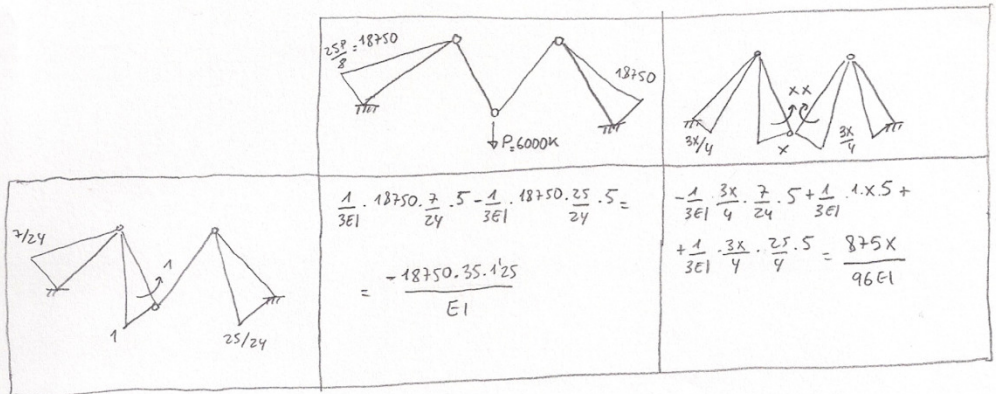 25P/8 = 18750
18750
P=6000K
3X/4
X
X X
3X/4
7/24
1
1
25/24
1/3EI · 18750 · 7/24 · 5 - 1/3EI · 18750 · 25/24 · 5 =
= -18750 · 35 · 1'25 / EI
- 1/3EI · 3X/4 · 7/24 · 5 + 1/3EI · 1 · X · 5 +
+ 1/3EI · 3X/4 · 25/4 · 5 = 875X / 96EI